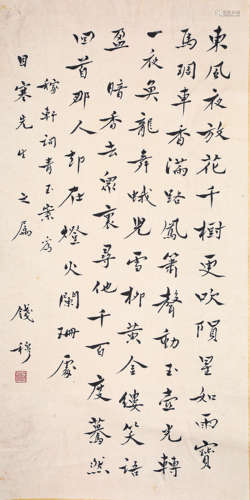 東風夜放花千樹更吹隕星如雨寶
馬琱車香滿路鳳簫聲動玉壺光轉
一夜魚龍舞蛾兒雪柳黃金縷笑語
盈暗香去眾裏尋他千百度驀然
回首那人却在燈火闌珊處
稼軒詞青玉案
目寒先生之屬
錢穆